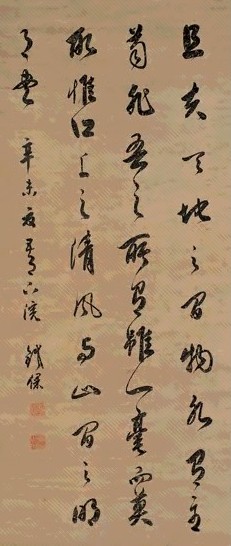 且夫天地之間物各有主
苟非吾之所有雖一毫而莫
取惟江上之清風與山間之明
月
辛未夏 鐵保